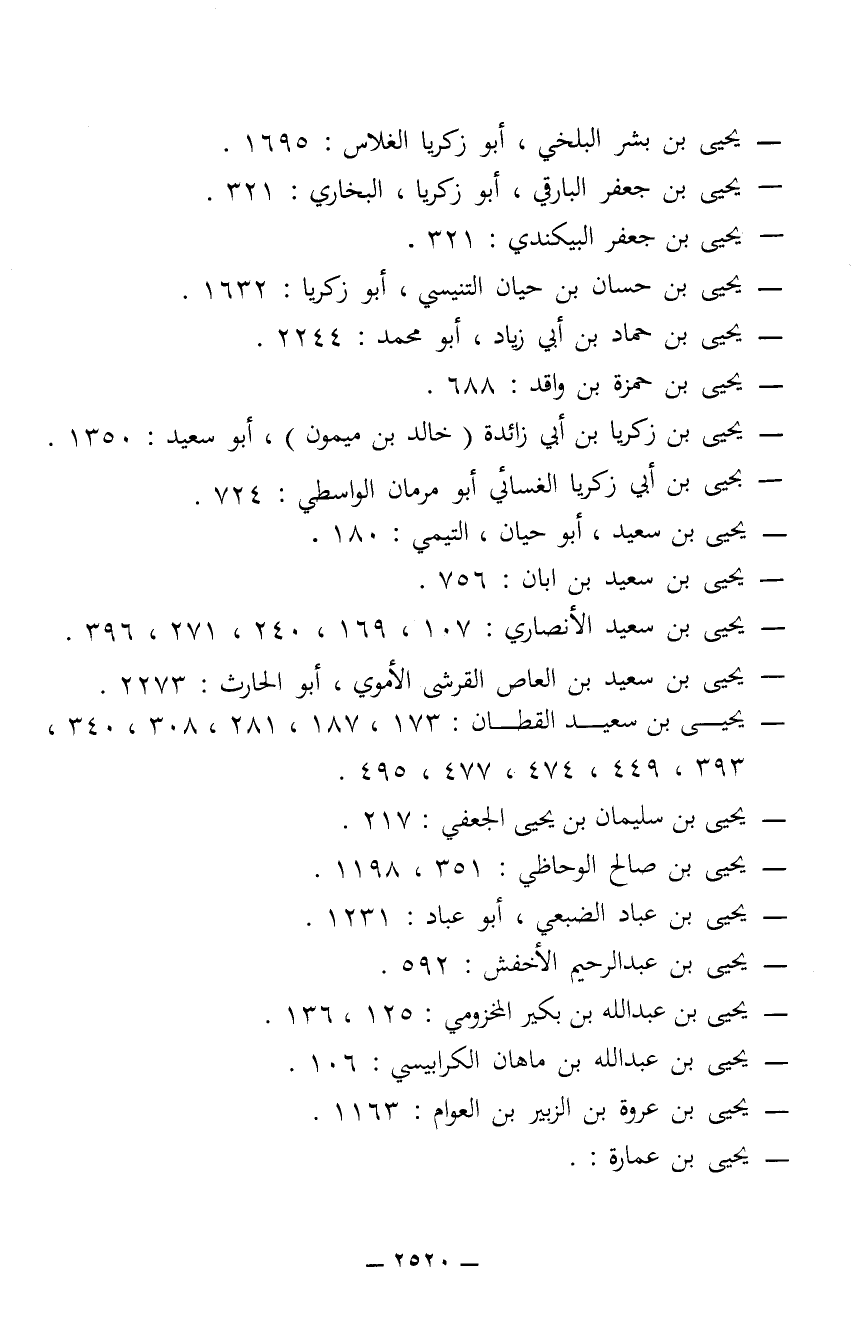 — يحيى بن بشر البلخي ، أبو زكريا الغلاس : ١٦٩٥ .
— يحيى بن جعفر البارقي ، أبو زكريا ، البخاري : ٣٢١ .
— يحيى بن جعفر البيكندي : ٣٢١ .
— يحيى بن حسان بن حيان التنيسي ، أبو زكريا : ١٦٣٢ .
— يحيى بن حماد بن أبي زياد ، أبو محمد : ٢٢٤٤ .
— يحيى بن حمزة بن واقد : ٦٨٨ .
— يحيى بن زكريا بن أبي زائدة ( خالد بن ميمون ) ، أبو سعيد : ١٣٥٠ .
— يحيى بن أبي زكريا الغسائي أبو مرمان الواسطي : ٧٢٤ .
— يحيى بن سعيد ، أبو حيان ، التيمي : ١٨٠ .
— يحيى بن سعيد بن ابان : ٧٥٦ .
— يحيى بن سعيد الأنصاري : ١٠٧ ، ١٦٩ ، ٢٤٠ ، ٢٧١ ، ٣٩٦ .
— يحيى بن سعيد بن العاص القرشى الأموي ، أبو الحارث : ٢٢٧٣ .
— يحيـــى بن سعيـــد القطـــان : ١٧٣ ، ١٨٧ ، ٢٨١ ، ٣٠٨ ، ٣٤٠ ،
٣٩٣ ، ٤٤٩ ، ٤٧٤ ، ٤٧٧ ، ٤٩٥ .
— يحيى بن سليمان بن يحيى الجعفي : ٢١٧ .
— يحيى بن صالح الوحاظي : ٣٥١ ، ١١٩٨ .
— يحيى بن عباد الضبعي ، أبو عباد : ١٢٣١ .
— يحيى بن عبدالرحيم الأخفش : ٥٩٢ .
— يحيى بن عبدالله بن بكير المخزومي : ١٢٥ ، ١٣٦ .
— يحيى بن عبدالله بن ماهان الكرابيسي : ١٠٦ .
— يحيى بن عروة بن الزبير بن العوام : ١١٦٣ .
— يحيى بن عمارة : .
— ٢٥٢٠ —